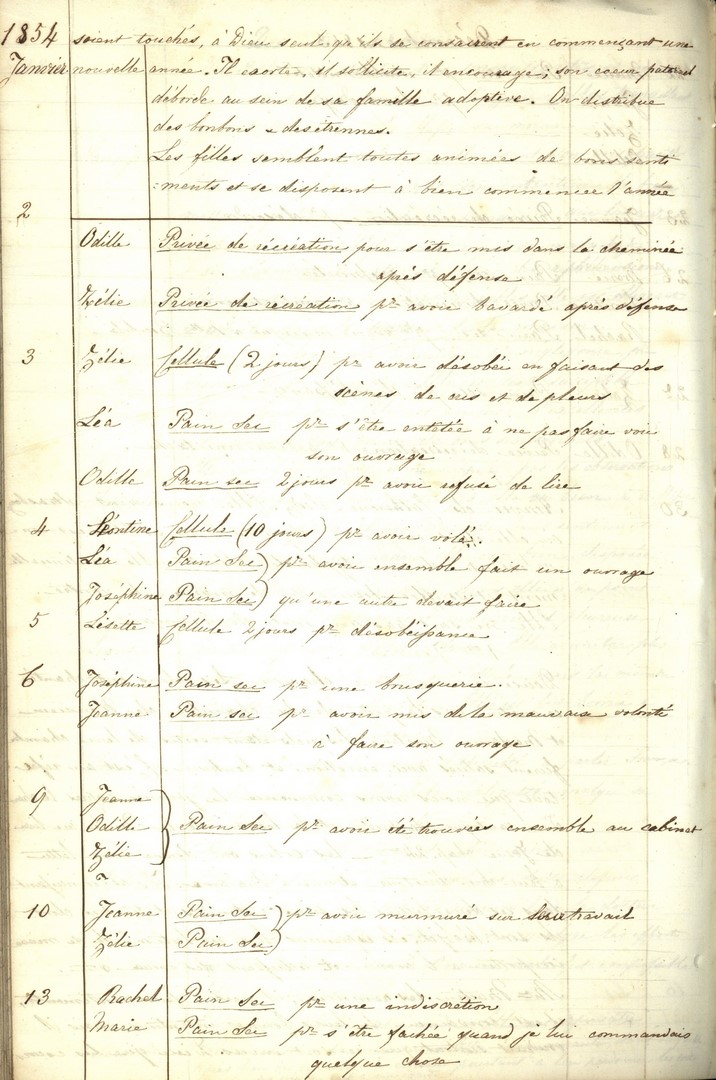 1854 soient touchés, à Dieu seul qu'ils se consacrent en commençant une
Janvier nouvelle année. Il exorte, il sollicite, il encourage ; son coeur paternel
déborde au sein de sa famille adoptive. On distribue
des bonbons & des étrennes.
Les filles semblent toutes animées de bons senti
=ments et se disposent à bien commencer l'année
2
Odille Privée de récréation pour s'être mis dans la cheminée
après défense
Zélie Privée de récréation pr avoir bavardé après défense
3 Zélie Cellule (2 jours) pr avoir désobéi en faisant des
scènes de cris et de pleurs
Léa Pain Sec pr s'être entêtée à ne pas faire voir
son ouvrage
Odille Pain sec 2 jours pr avoir refusé de lire
4 Léontine Cellule (10 jours) pr avoir volé.
Léa Pain Sec) pr avoir ensemble fait un ouvrage
Joséphine Pain Sec) qu'une autre devait faire
5 Lisette Cellule 2 jours pr désobéissance
6 Joséphine Pain sec pr une brusquerie.
Jeanne Pain sec pr avoir mis de la mauvaise volonté
à faire son ouvrage
9 Jeanne
Odille } Pain Sec pr avoir été trouvées ensemble au cabinet
Zélie
10 Jeanne Pain Sec) pr avoir murmuré sur travail
Zélie Pain Sec)
13 Rachel Pain Sec pr une indiscrétion
Marie Pain Sec pr s'être fachée quand je lui commandais
quelque chose